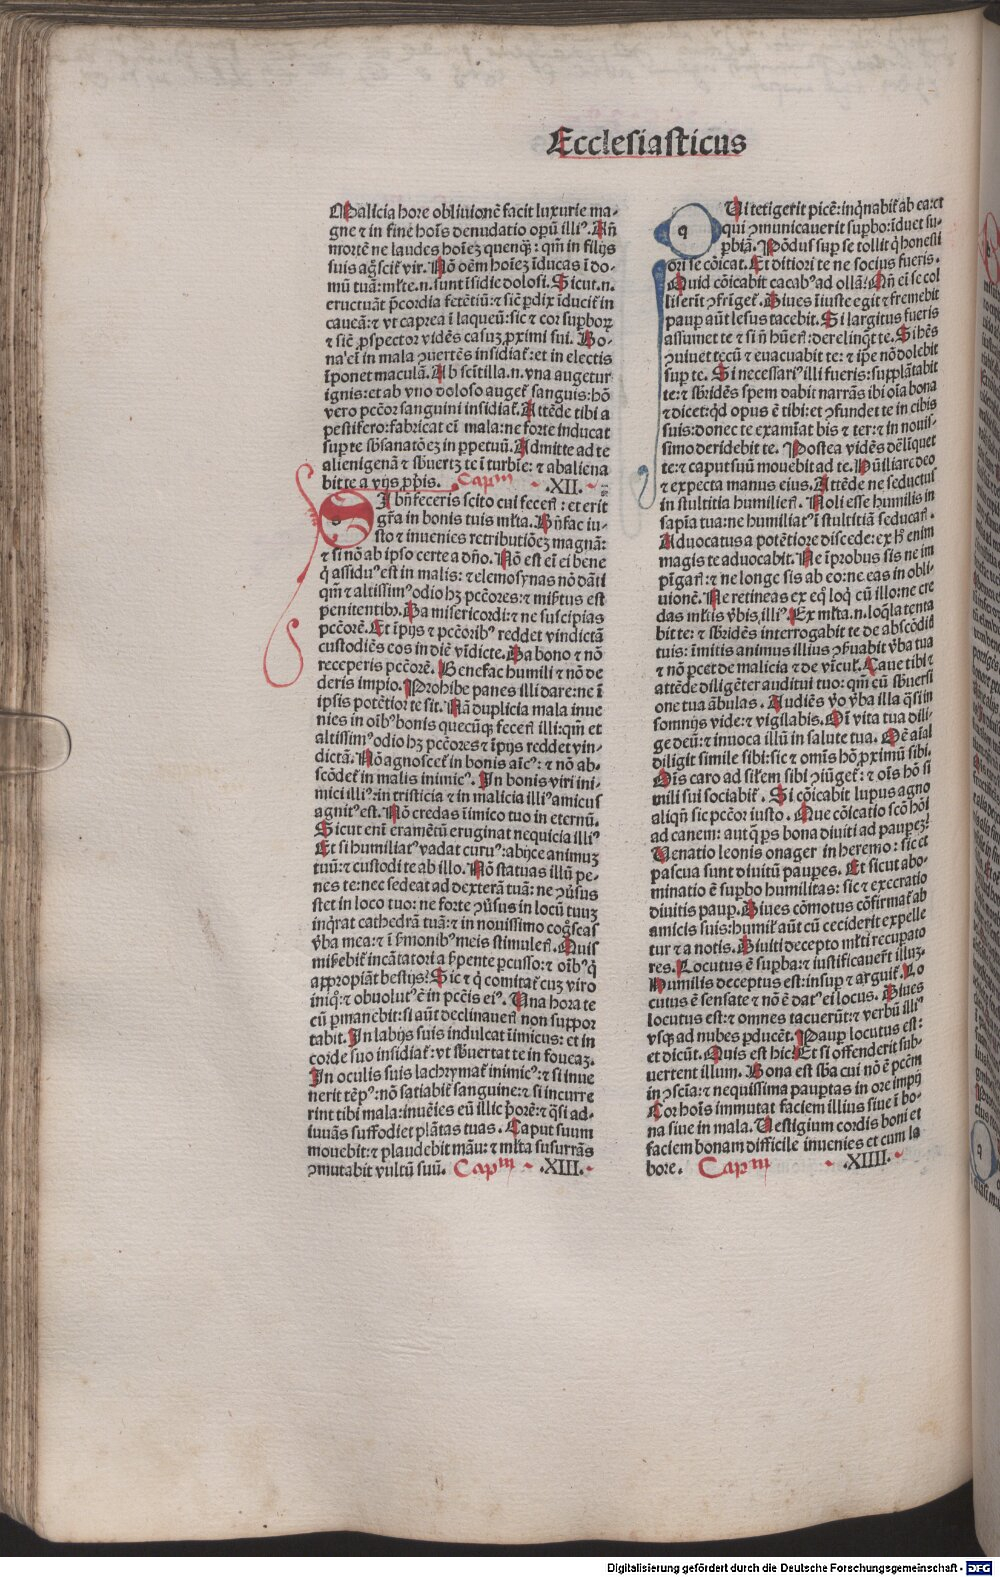 Ecclesiasticus
Malicia hore obliuionē facit luxurie ma-
gne ⁊ in fine hoīs denudatio opū illiꝰ. Añ
mortē ne laudes hoīeꝫ quenqꝫ: qm̄ in filijs
suis agscit̄ vir. Nō oēm hoīeꝫ īducas ī do-
mū tuā: ml̄te .n. sunt īsidie dolosi. Sicut .n.
eructuāt p̄cordia fetētiū: ⁊ sic ꝑdix īducit̄ in
caueā: ⁊ vt caprea ī laqueū: sic ⁊ cor suꝑboꝝ
⁊ sicē ꝓspector vidēs casuꝫ ꝓximi sui. Bo-
na eī in mala ꝯuertēs insidiat̄: et in electis
īponet maculā. Ab scītilla .n. vna augetur
ignis: et ab vno doloso auget̄ sanguis: hō
vero pctōr sanguini insidiat̄. Attēde tibi a
pestifero: fabricat eī mala: ne forte inducat
suꝑ te sb̄sanatōeꝫ in ꝑpetuū. Admitte ad te
alienigenā ⁊ sb̄uertꝫ te ī turbīe: ⁊ abaliena
bit te a vijs ꝓprijs. Capm .XII.
SI bn̄feceris scito cui feceri̅: et erit
gr̄a in bonis tuis ml̄ta. Bn̄fac iu-
sto ⁊ inuenies retributiōeꝫ magnā:
⁊ si nō ab ipso certe a dn̄o. Nō est eī ei bene
q̇ assiduꝰ est in malis: ⁊ elemosynas nō dāti
qm̄ ⁊ altissimꝰ odio hꝫ pctōres: ⁊ mis̄tus est
penitentibꝰ. Da misericordi: ⁊ ne suscipias
pctōrē. Et īpijs ⁊ pctōribꝰ reddet vindictā
custodiēs eos in diē vīdicte. Da bono ⁊ nō
receperis pctōrē. Benefac humili ⁊ nō de
deris impio. Prohibe panes illi dare: ne ī
ipsis potētior te sit. Nā duplicia mala inue
nies in oībꝰ bonis quecūqꝫ fecerī illi: qm̄ et
altissimꝰ odio hꝫ pctōres ⁊ īpijs reddet vin-
dictā. Nō agnoscet̄ in bonis aīcꝰ: ⁊ nō ab-
scōdet̄ in malis inimicꝰ. In bonis viri ini-
mici illiꝰ: in tristicia ⁊ in malicia illiꝰ amicus
agnitꝰ est. Nō credas īimico tuo in eternū.
Sicut enī eramētū eruginat nequicia illiꝰ
Et si humiliatꝰ vadat curuꝰ: abijce animuꝫ
tuū: ⁊ custodi te ab illo. Nō statuas illū pe-
nes te: nec sedeat ad dexterā tuā: ne ꝯuersus
stet in loco tuo: ne forte ꝯuersus in locū tuuꝫ
inq̇rat cathedrā tuā: ⁊ in nouissimo cogscas
v̄ba mea: ⁊ ī s̄monibꝰ meis stimuleri̅. Quis
mis̄ebit̄ incātatori a s̄pente ꝑcusso: ⁊ oībꝰ q̇
appropiāt bestijs? Sic ⁊ q̇ comitat̄ cuꝫ viro
iniqͦ: ⁊ obuolutꝰ ē in pctīs eiꝰ. Una hora te
cū ꝑmanebit: si aūt declinaueri̅ non suppor
tabit. In labijs suis indulcat īimicus: et in
corde suo insidiat̄: vt sb̄uertat te in foueaꝫ.
In oculis suis lachrymat̄ inimicꝰ: ⁊ si inue
nerit tēpꝰ: nō satiabit̄ sanguine: ⁊ si incurre
rint tibi mala: inuēies eū illic p̄orē: ⁊ q̄si ad-
iuuās suffodiet plātas tuas. Caput suum
mouebit: ⁊ plaudebit māu: ⁊ ml̄ta susurrās
ꝯmutabit vultū suū. Capm .XIII.
QUi tetigerit picē: inqnabit̄ ab ea: et
qui ꝯmunicauerit suꝑbo: īduet su-
ꝑbiā. Pōdus suꝑ se tollit q̇ honesti
ori se cōicat. Et ditiori te ne socius fueris.
Quid cōicabit cacabꝰ ad ollā? Qn̄ eī se col
liserit ꝯfrīget̄. Diues īiuste egit ⁊ fremebit
pauꝑ aūt lesus tacebit. Si largitus fueris
assumet te ⁊ si n̄ hūeri̅: derelinq̇t te. Si hēs
ꝯuiuet tecū ⁊ euacuabit te: ⁊ ip̄e nō dolebit
suꝑ te. Si necessariꝰ illi fueris: supplātabit
te: ⁊ sb̄ridēs spem dabit narrās tibi oīa bona
⁊ dicet: qd opus ē tibi: et ꝯfundet te in cibis
suis: donec te exaniat bis ⁊ ter: ⁊ in nouis-
simo deridebit te. Postea vidēs deliquet
te: ⁊ caput suū mouebit ad te. Hūiliare deo
⁊ expecta manus eius. Attēde ne seductus
in stultitia humilieri̅. Noli esse humilis in
sapīa tua: ne humiliatꝰ ī stultitiā seducari̅.
Aduocatus a potētiore discede: ex h̄ enim
magis te aduocabit. Ne īprobus sis ne im
pīgari̅: ⁊ ne longe sis ab eo: ne eas in obli-
uionē. Ne retineas ex eq̄ loq̇ cū illo: ne cre
das ml̄tis v̄bis illiꝰ. Ex ml̄ta .n. loq̄la tenta
bit te: ⁊ sb̄ridēs interrogabit te de abscōdiꝭ
tuis: īmitis animus illius ꝯs̄uabit v̄ba tua
⁊ nō ꝑcet de malicia ⁊ de vīcul̄. Caue tibi ⁊
attēde diligēter auditui tuo: qm̄ cū sb̄uersi
one tua ābulas. Audiēs v̄o v̄ba illa q̄si in
somnijs vide: ⁊ vigilabis. Oī vita tua dili-
ge deū: ⁊ inuoca illū in salute tua. Oē aīal
diligit simile sibi: sic ⁊ omīs hō ꝓximū sibi.
Oīs caro ad sil̄em sibi ꝯiūget̄: ⁊ oīs hō si
mili sui sociabit̄. Si cōicabit lupus agno
aliqn̄ sic pctōr iusto. Que cōicatio scō hōi
ad canem: aut q̄ ꝑs bona diuiti ad pauꝑeꝫ?
Uenatio leonis onager in heremo: sic et
pascua sunt diuitū pauꝑes. Et sicut abo-
minatio ē suꝑbo humilitas: sic ⁊ execratio
diuitis pauꝑ. Diues cōmotus cōfirmat̄ ab
amicis suis: humil̄ aūt cū ceciderit expelle
tur ⁊ a notis. Diuiti decepto ml̄ti recuꝑato
res. Locutus ē suꝑba: ⁊ iustificauert̄ illuꝫ.
Humilis deceptus est: insuꝑ ⁊ arguit̄. Lo
cutus ē sensate ⁊ nō ē datꝰ ei locus. Diues
locutus est: ⁊ omnes tacuerūt: ⁊ verbū illiꝰ
vsqꝫ ad nubes ꝑducēt. Pauꝑ locutus est:
et dicūt. Quis est hic? Et si offenderit sub-
uertent illum. Bona est sb̄a cui nō ē pctm̄
in ꝯscīa: ⁊ nequissima pauꝑtas in ore impij
Cor hoīs immutat faciem illius siue ī bo-
na siue in mala. Uestigium cordis boni et
faciem bonam difficile inuenies et cum la
bore. Capm .XIIII.
Digitalisierung gefördert durch die Deutsche Forschungsgemeinschaft - DFG